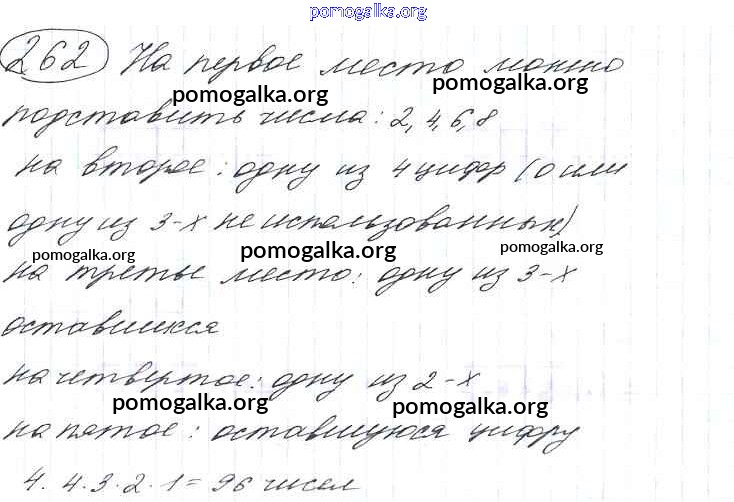 pomogalka.org
262 На первое место можно
pomogalka.org pomogalka.org
подставить числа: 2, 4, 6, 8
на второе: одну из 4 цифр (0 или
одну из 3-х неиспользованных)
pomogalka.org pomogalka.org pomogalka.org
на третье место: одну из 3-х
оставшихся
на четвертое: одну из 2-х
pomogalka.org pomogalka.org
на пятое: оставшуюся цифру
4 · 4 · 3 · 2 · 1 = 96 чисел